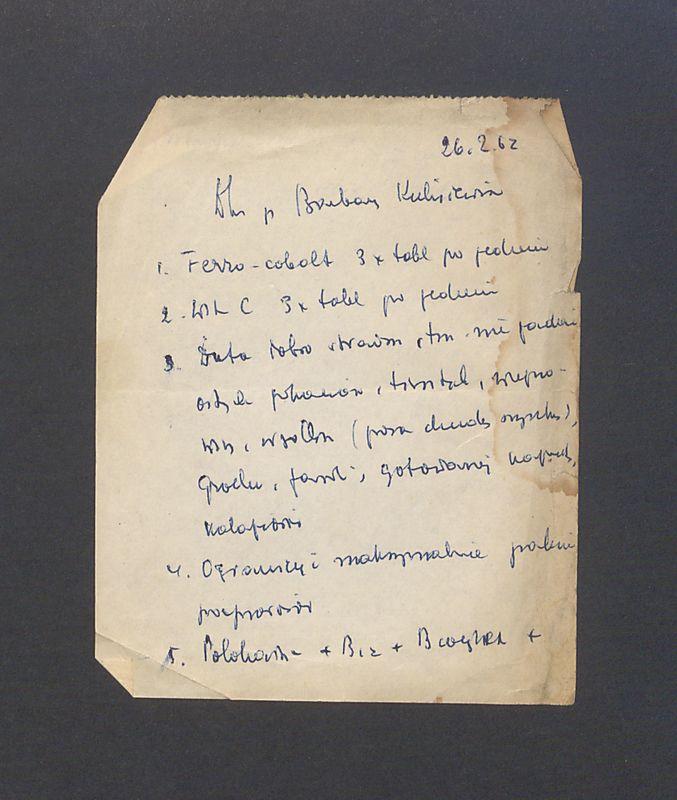 26.2.62
Dla p Barbary Kulisiewicz
1. Ferro-cobalt 3 x tabl po jedzeniu
2. Wit C 3 x tabl po jedzeniu
3. Dieta dobrze strawna, tzn. nie jadać
ostrych pokarmów, tłustych, wieprzo-
winy, wędlin (poza chudą szynką),
grochu, fasoli, gotowanej kapusty,
kalafiorów
4. Ograniczyć maksymalnie palenie
papierosów
5. + B12 + B complex +